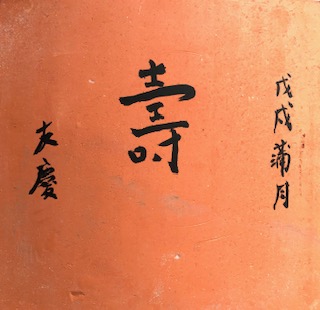 戊戌蒲月
壽
友慶